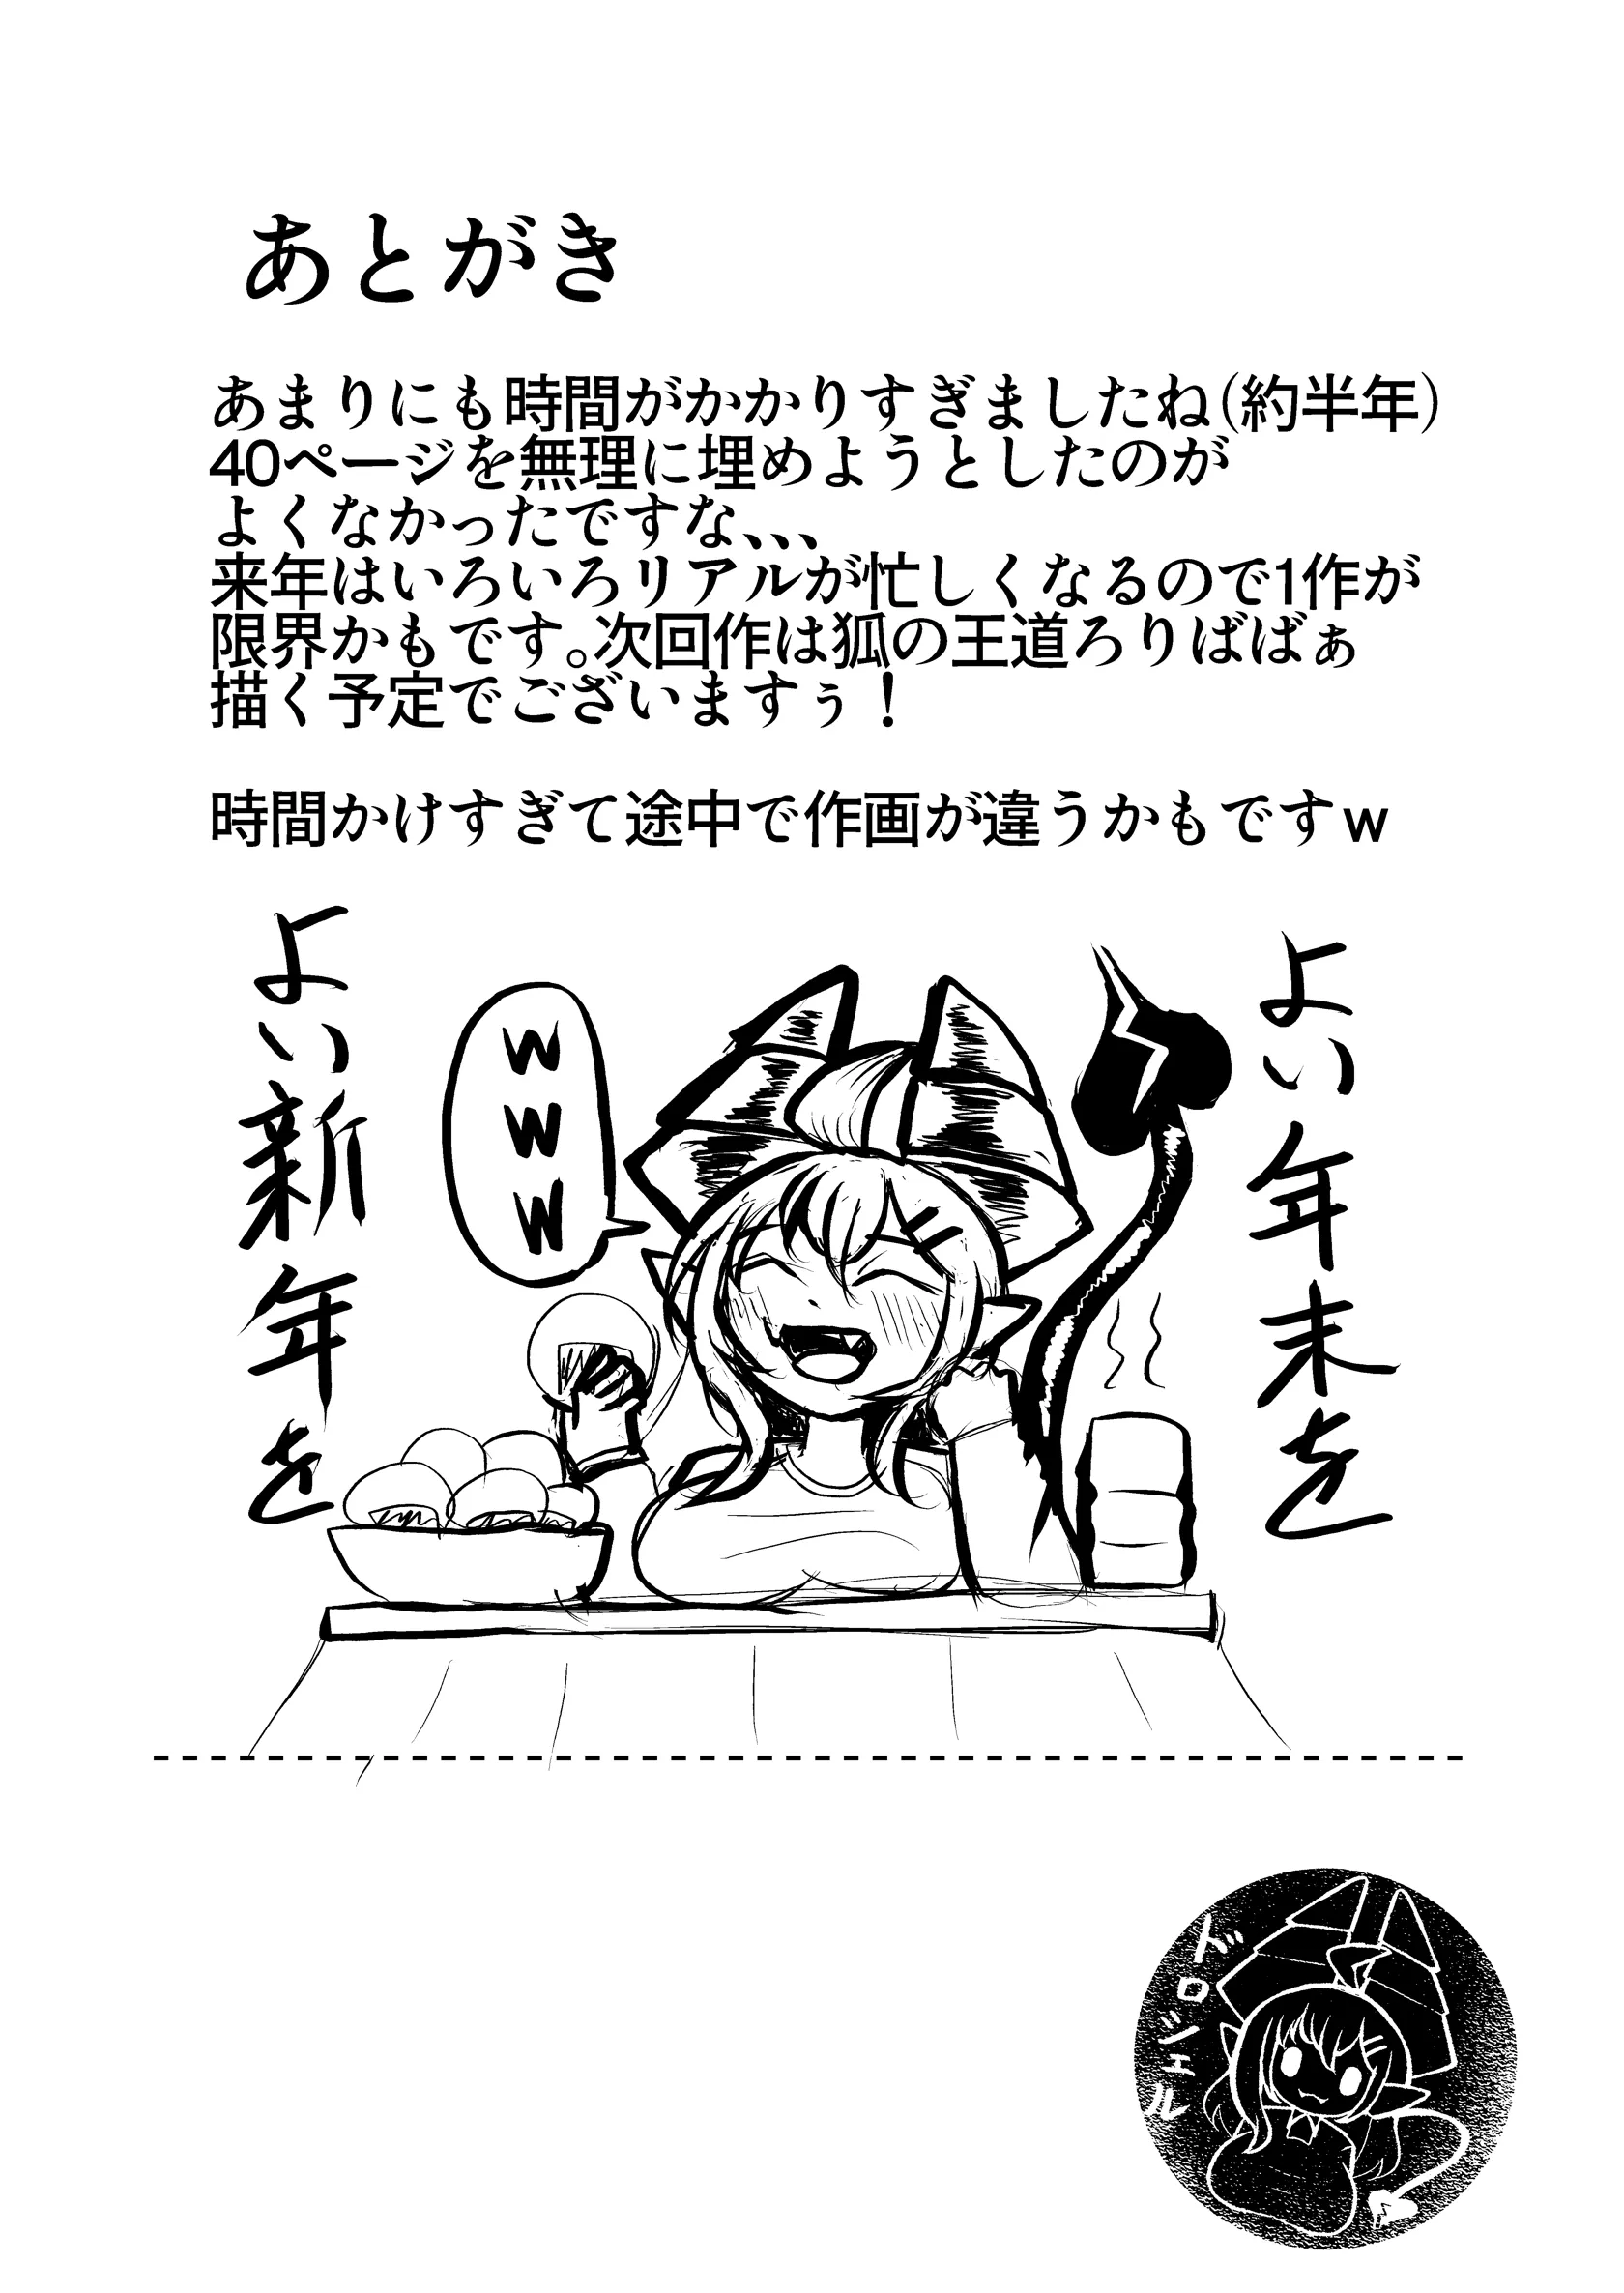 あとがき
あまりにも時間がかかりすぎましたね(約半年)
40ページを無理に埋めようとしたのが
よくなかったですな、、、
来年はいろいろリアルが忙しくなるので1作が
限界かもです。次回作は狐の王道ろりばばぁ
描く予定でございますぅ！
時間かけすぎて途中で作画が違うかもですw
よい年末を
www
よい新年を
ドロシェル